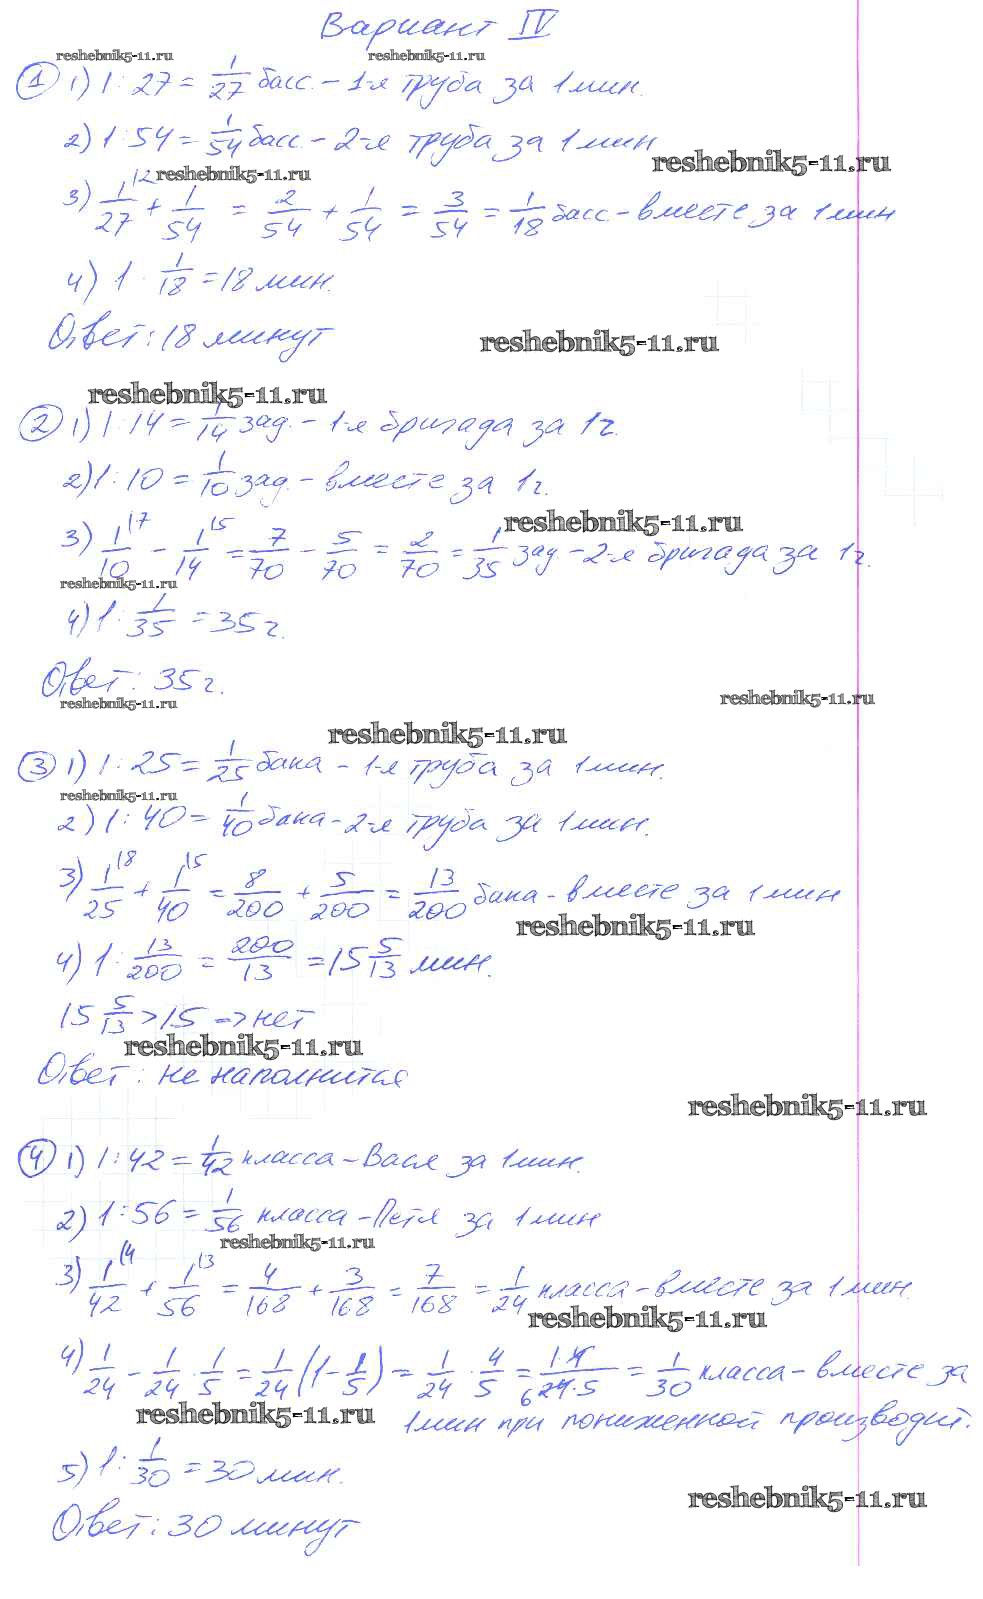 Вариант IV
reshebnik5-11.ru reshebnik5-11.ru
① 1) 1 : 27 = 1/27 басс. – 1-я труба за 1 мин.
2) 1 : 54 = 1/54 басс. – 2-я труба за 1 мин
reshebnik5-11.ru
reshebnik5-11.ru
3) 1/27 \2 + 1/54 = 2/54 + 1/54 = 3/54 = 1/18 басс – вместе за 1 мин
4) 1 : 1/18 = 18 мин.
Ответ: 18 минут
reshebnik5-11.ru
reshebnik5-11.ru
② 1) 1 : 14 = 1/14 зад. – 1-я бригада за 1 ч.
2) 1 : 10 = 1/10 зад. – вместе за 1 ч.
reshebnik5-11.ru
3) 1/10 \7 – 1/14 \5 = 7/70 – 5/70 = 2/70 = 1/35 зад – 2-я бригада за 1 ч.
reshebnik5-11.ru
4) 1 : 1/35 = 35 ч.
Ответ: 35 ч.
reshebnik5-11.ru reshebnik5-11.ru
reshebnik5-11.ru
③ 1) 1 : 25 = 1/25 бака – 1-я труба за 1 мин.
reshebnik5-11.ru
2) 1 : 40 = 1/40 бака – 2-я труба за 1 мин.
3) 1/25 \8 + 1/40 \5 = 8/200 + 5/200 = 13/200 бака – вместе за 1 мин
reshebnik5-11.ru
4) 1 : 13/200 = 200/13 = 15 5/13 мин.
15 5/13 > 15 => нет
reshebnik5-11.ru
Ответ: не наполнится
reshebnik5-11.ru
④ 1) 1 : 42 = 1/42 класса – Вася за 1 мин.
2) 1 : 56 = 1/56 класса – Петя за 1 мин
reshebnik5-11.ru
3) 1/42 \4 + 1/56 \3 = 4/168 + 3/168 = 7/168 = 1/24 класса – вместе за 1 мин.
reshebnik5-11.ru
4) 1/24 – 1/24 · 1/5 = 1/24 (1 – 1/5) = 1/24 · 4/5 = 1·4/6 24·5 = 1/30 класса – вместе за
reshebnik5-11.ru
1 мин при пониженной производит.
5) 1 : 1/30 = 30 мин.
reshebnik5-11.ru
Ответ: 30 минут